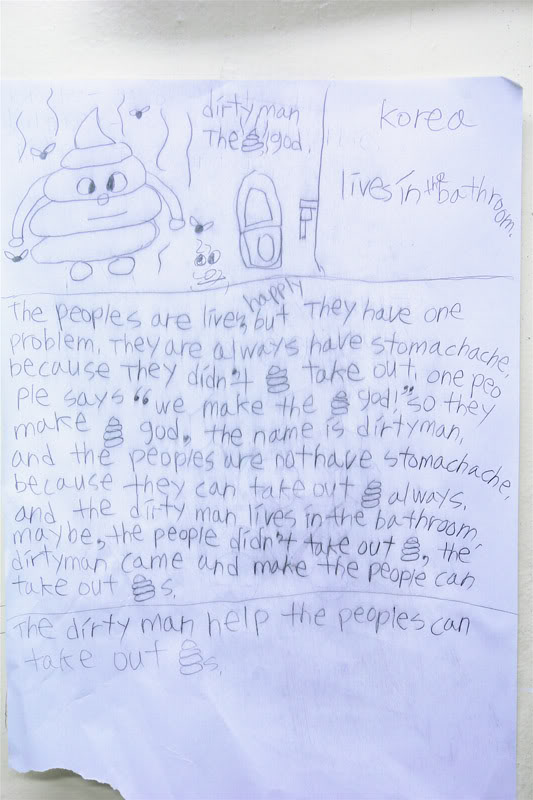 dirty man
The 💩 god.
korea
lives in the bathroom.
The peoples are lives happly, but They have one
problem. They are always have stomachache,
because they didn't 💩 take out, one peo
ple says "we make the 💩 god!" so they
make 💩 god, the name is dirtyman,
and the peoples are not have stomachache,
because they can take out 💩 always.
and the dirty man lives in the bathroom
maybe, the people didn't take out 💩, the
dirtyman came and make the people can
take out 💩s.
The dirty man help the peoples can
take out 💩s.